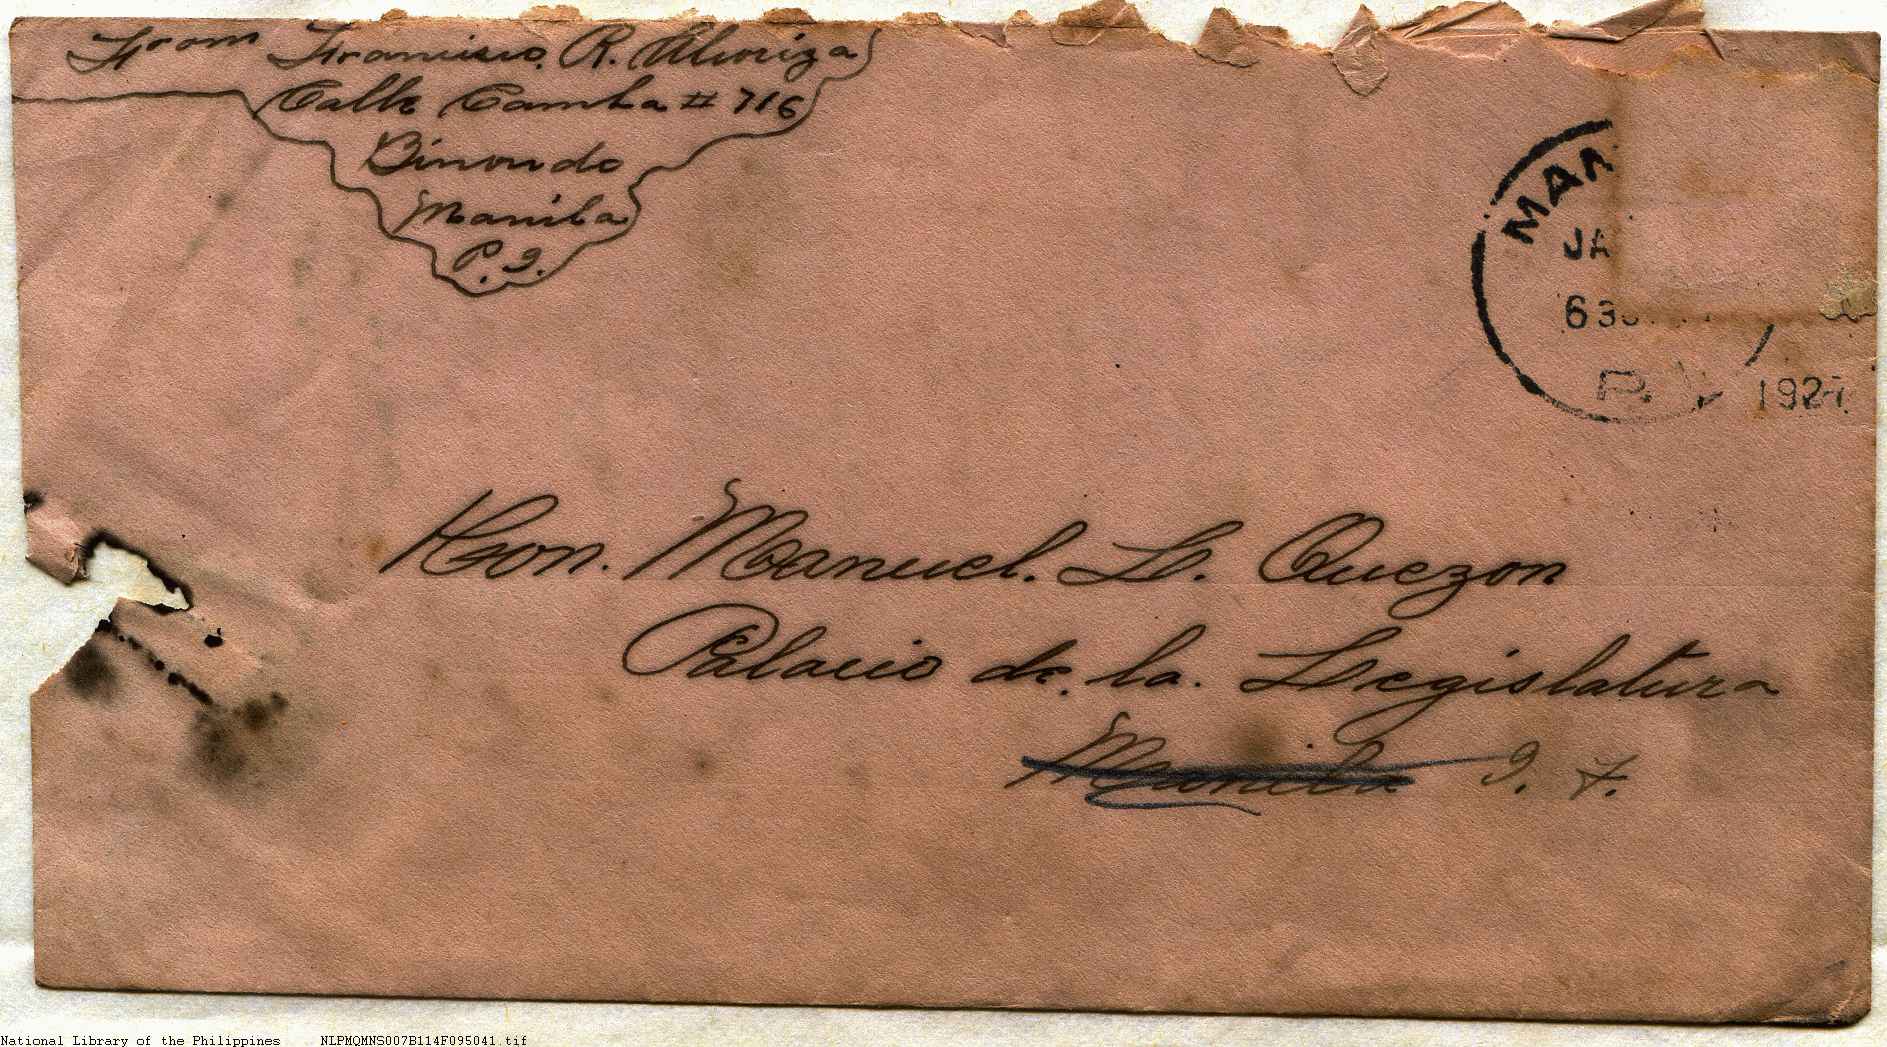 From Francisco. R. Aloriza
Calle Camba # 716
Binondo
Manila
P. I.
MAN
JA
630
P. 1927
Hon. Manuel. L. Quezon
Palacio de. la. Legislatura
Manila I. F.
National Library of the Philippines NLPMQMNS007B114F095041.tif